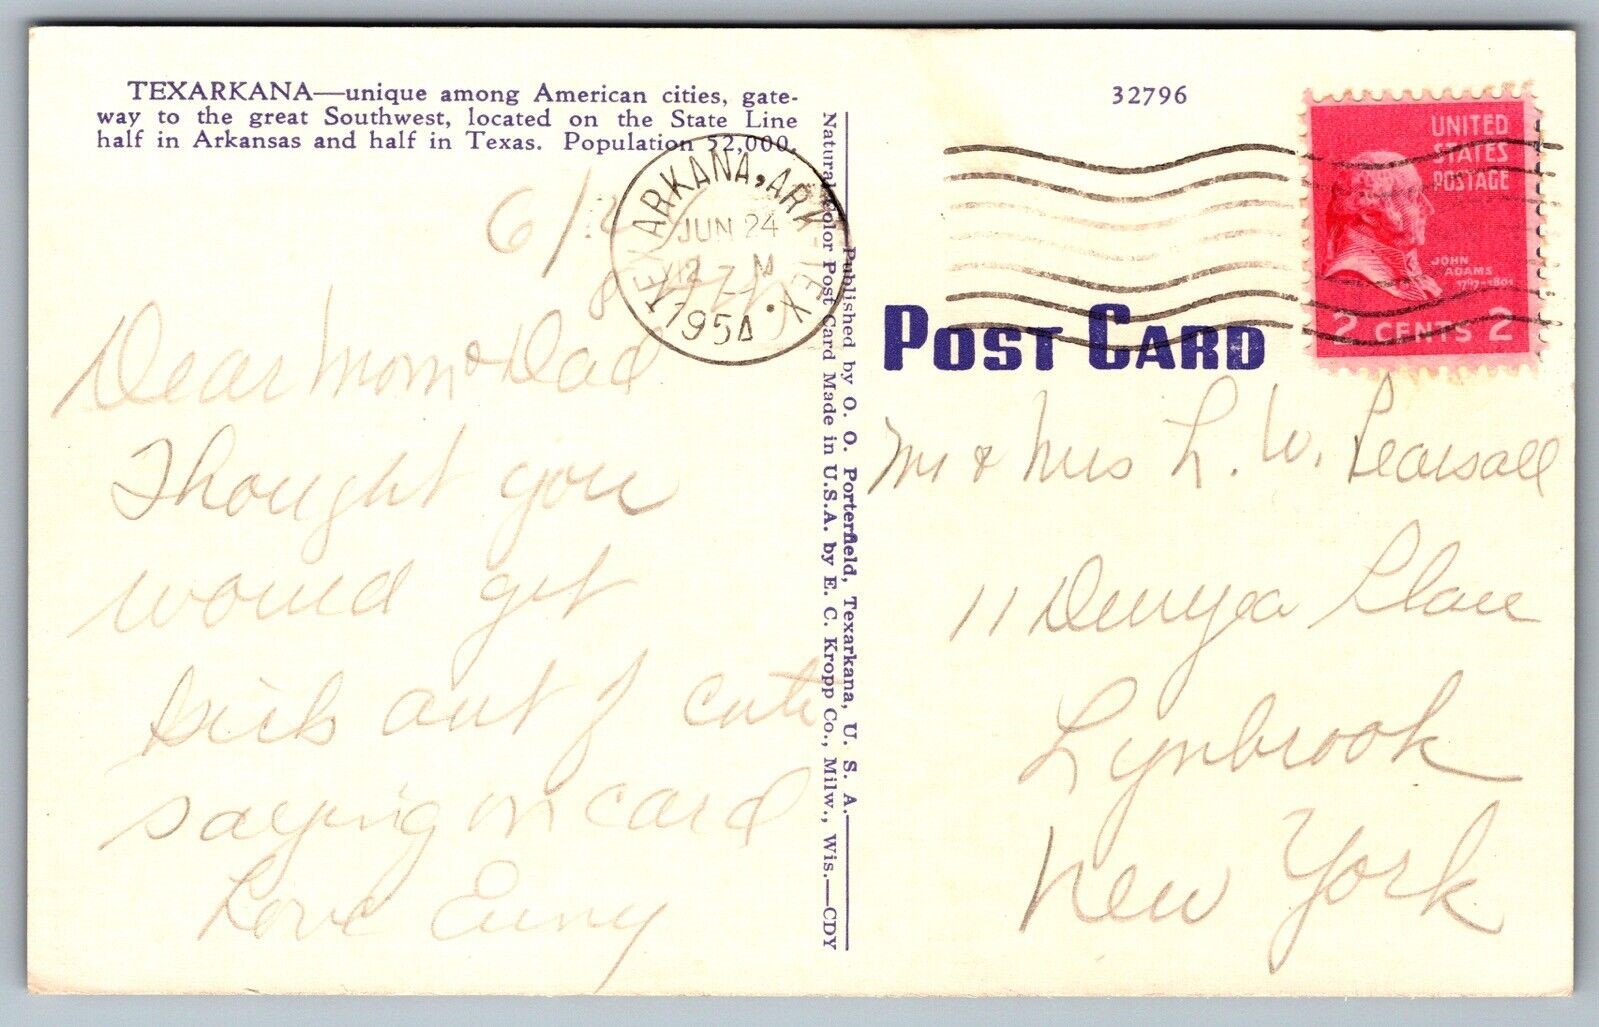 TEXARKANA—unique among American cities, gate-
way to the great Southwest, located on the State Line
half in Arkansas and half in Texas. Population 52,000.
6/2
Dear Mom & Dad
Thought you
would get
kick out of cute
saying on card
Love
TEXARKANA, ARK-TEX.
JUN 24
12 - M
1954
Published by O. O. Porterfield, Texarkana, U. S. A.
Natural Color Post Card Made in U.S.A. by E. C. Kropp Co., Milw., Wis.—CDY
32796
UNITED
STATES
POSTAGE
JOHN
ADAMS
1797–1801
2 CENTS 2
POST CARD
Mr & Mrs L. W. Pearsall
11 Place
Lynbrook
New York